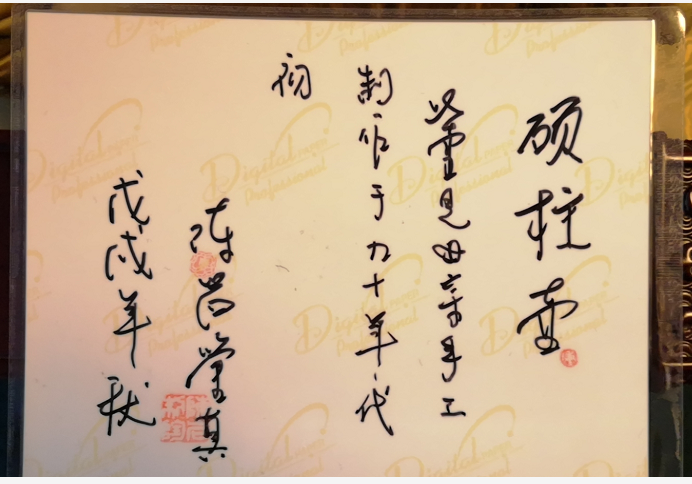 硕柱壶
此壶是母亲手工
制作于九十年代
初
陈
鉴真
戊戌年秋
Digital
Professional